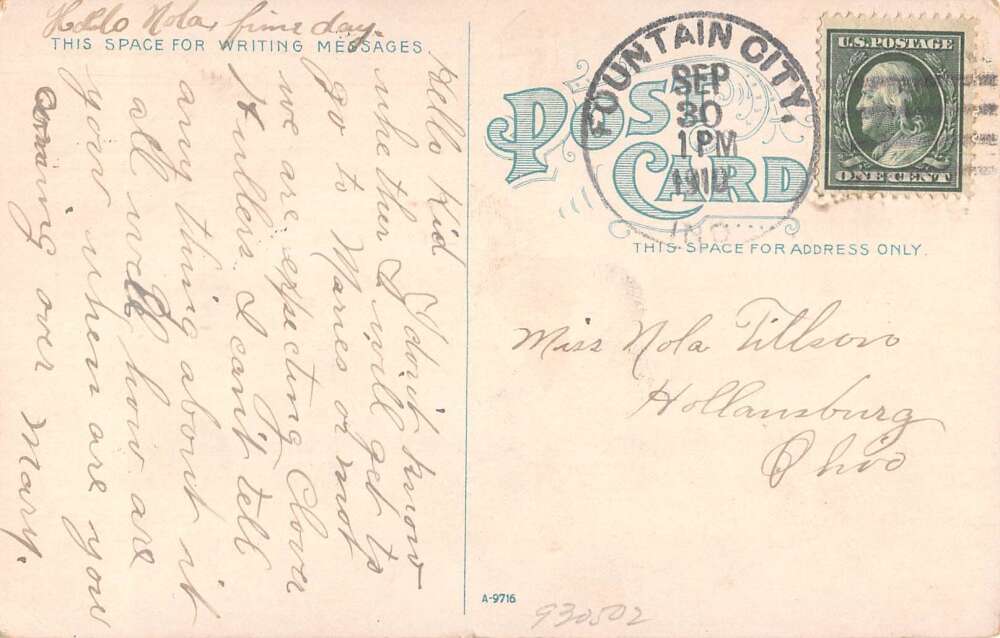 Hello Nola, fine day.
THIS SPACE FOR WRITING MESSAGES.
Hello Kid I don't know
whether I will get to
go to Maries or not
we are expecting Clover
Hullers. I can't tell
any thing about it
all well how are
you when are you
coming over Mary.
POST CARD
FOUNTAIN CITY,
SEP
30
1 PM
1910
IND.
U.S. POSTAGE
ONE CENT
THIS SPACE FOR ADDRESS ONLY.
Miss Nola Tillson
Hollansburg
Ohio
A-9716
930502